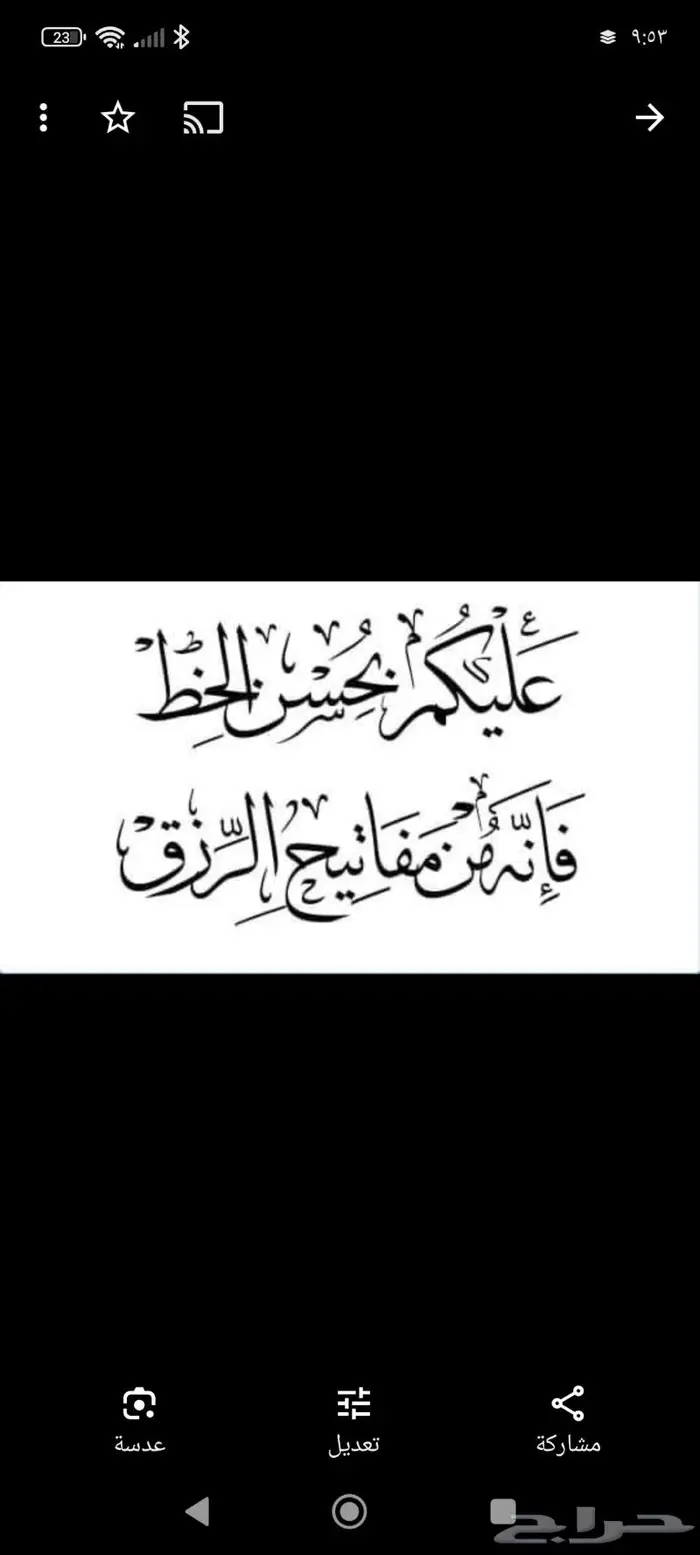 23
٩:٥٣
عَلَيْكُمْ بِحُسْنِ الخَطِّ
فَإِنَّهُ مِنْ مَفَاتِيحِ الرِّزْقِ
مشاركة تعديل عدسة
حراج